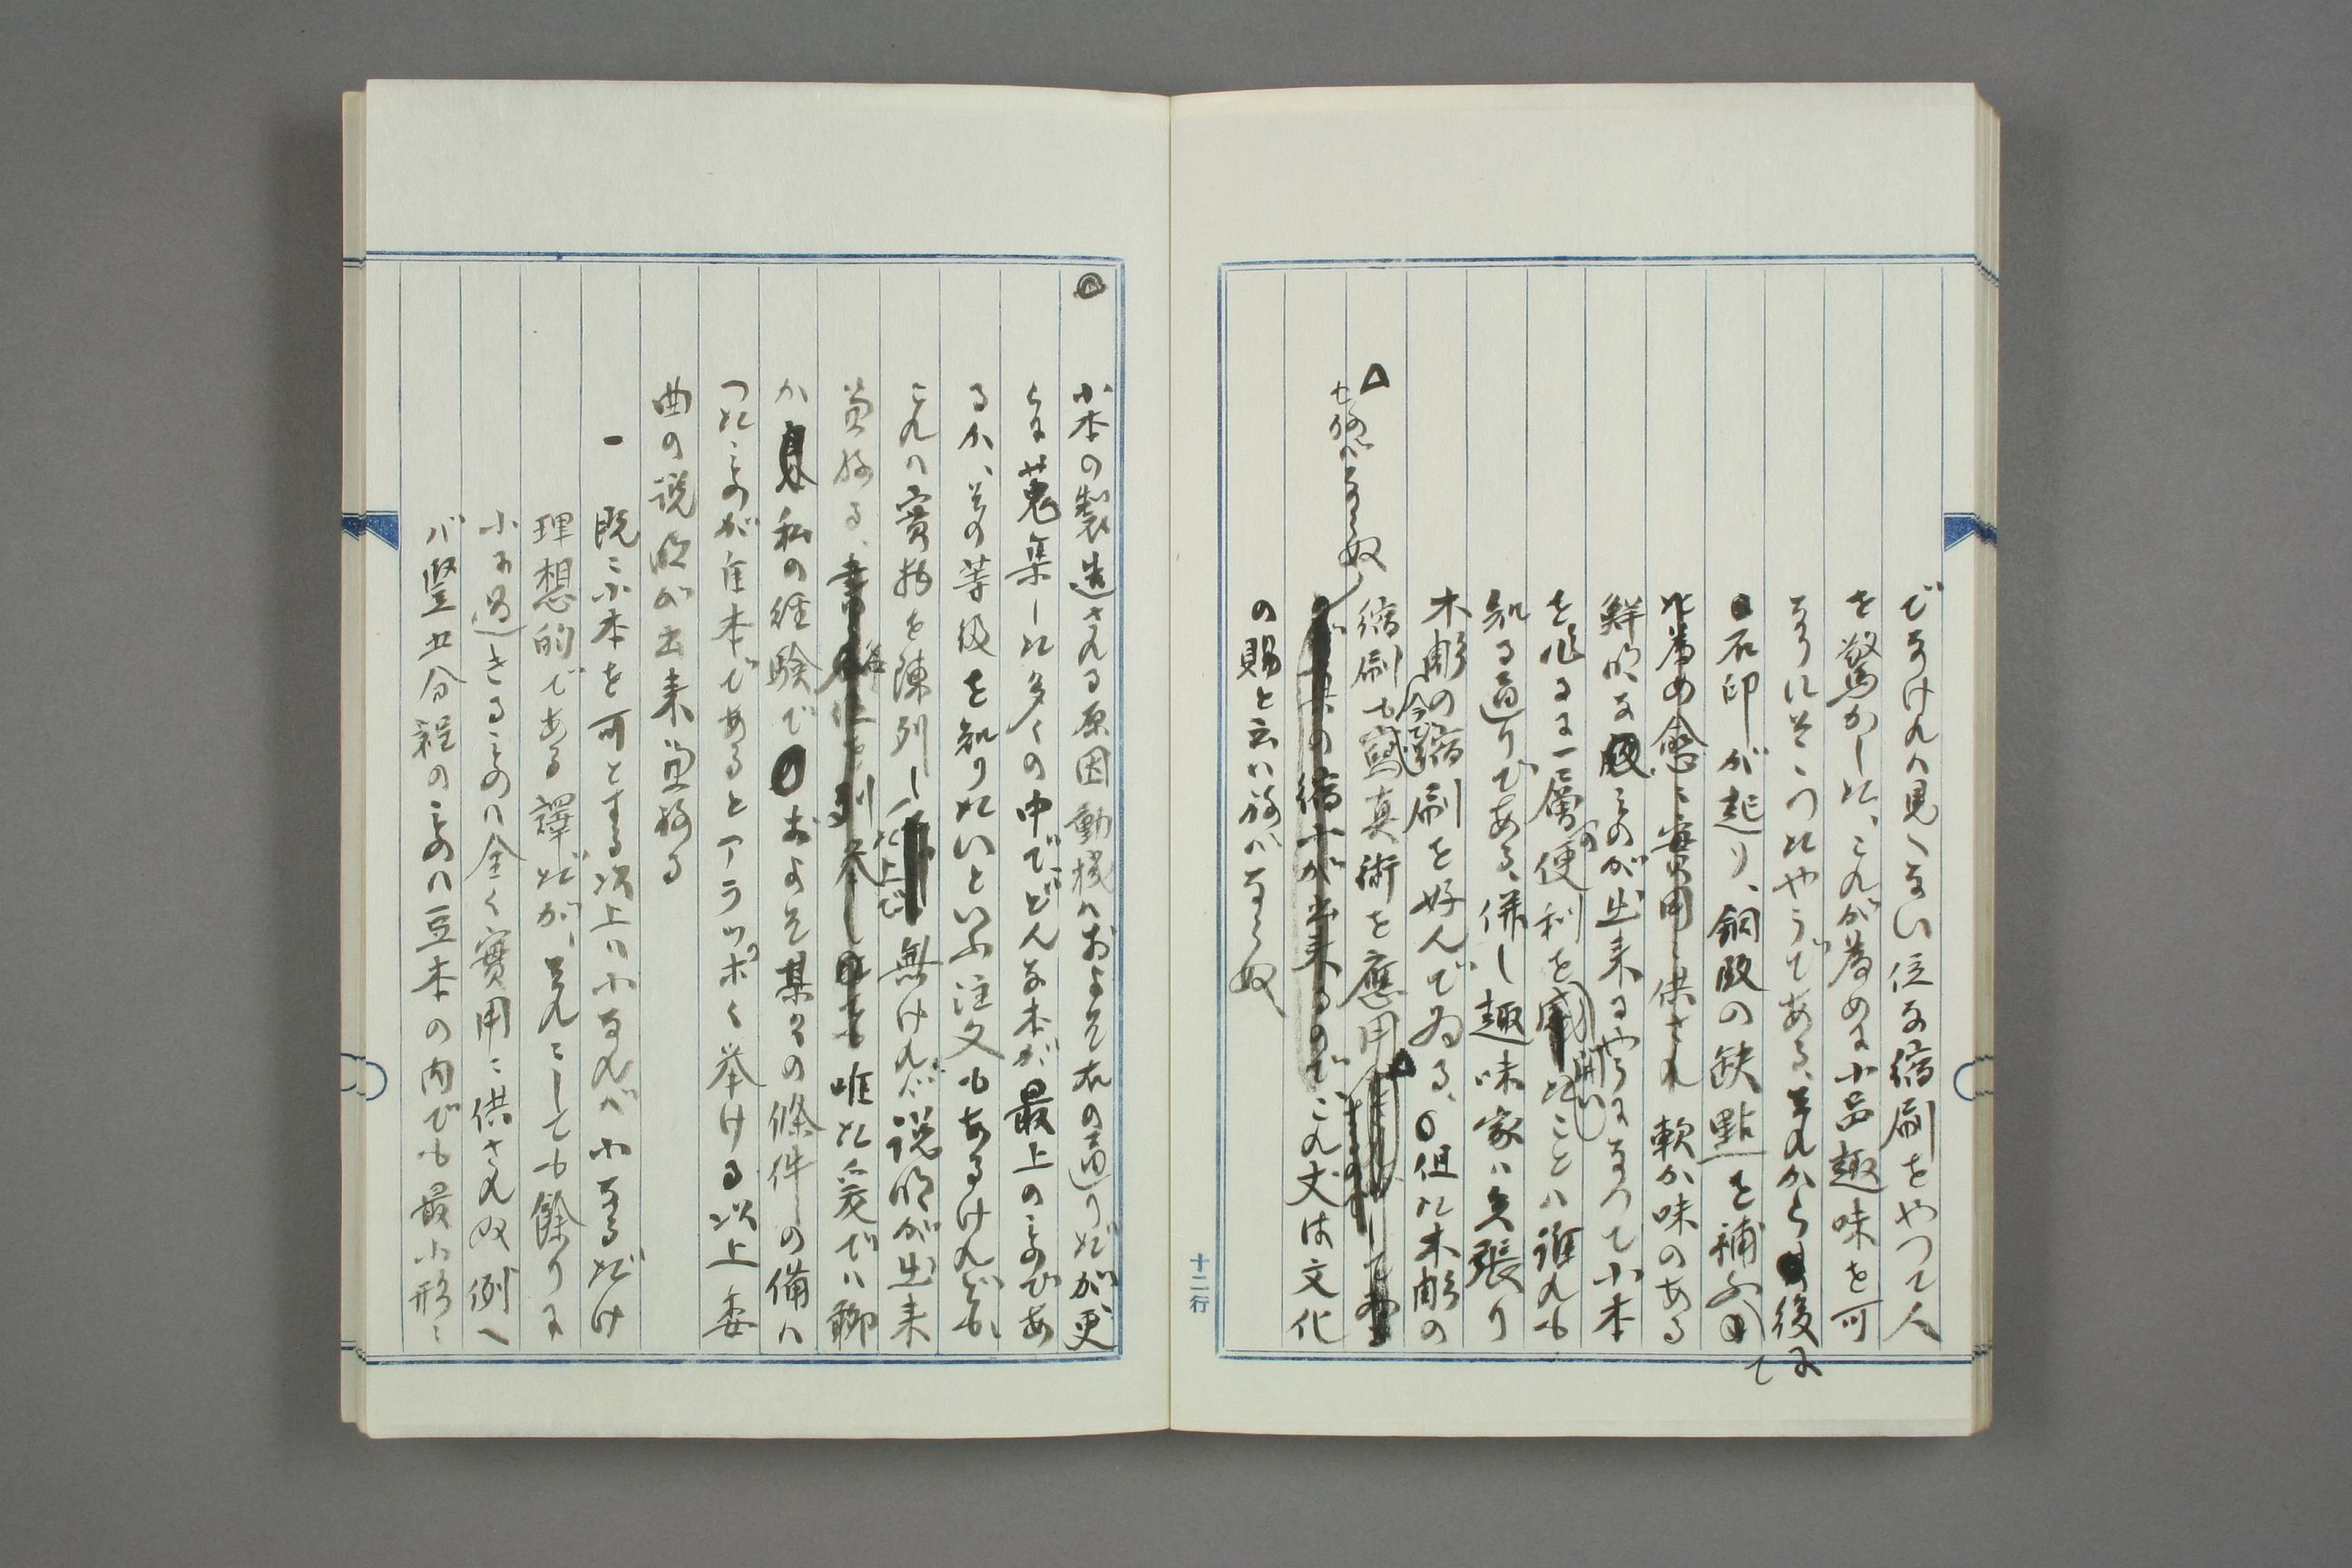 でなけれハ見へない位な縮刷をやつて人
を驚かした、これが為めに小品趣味を可
なりにそゝつたやうである、それから後に
石印が起り、銅版の缺點を補ふて
た為め愈々實用ニ供され軟か味のある
鮮明なものが出来るやうになつて小本
を作るに一層の便利を開いたことハ誰れも
知る通りである、併し趣味家ハ矢張り
木彫の縮刷を好んでゐる、但た木彫の
縮刷も今でハ寫真術を應用して
せねハならぬ
これ丈は文化
の賜と云ハねハならぬ
十二行
小本の製造される原因動機ハおよそ右の通りだが、更
らに蒐集した多くの中でどんな本が最上のものであ
るか、その等級を知りたいといふ注文もあるけれども、
これハ實物を陳列した上で無けれバ説明が出来
兼ねる、唯た爰でハ聊
か私の経験でおよそ某々の條件の備ハ
つたものが佳本であるとアラッポく挙ける以上委
曲の説明が出来兼ねる
一 既ニ小本を可とする以上ハ小なれバ小なるだけ
理想的である譯だが、それにしても餘りに
小に過きるものハ全く實用ニ供されぬ例へ
バ豎五分程のものハ豆本の内でも最小形ニ